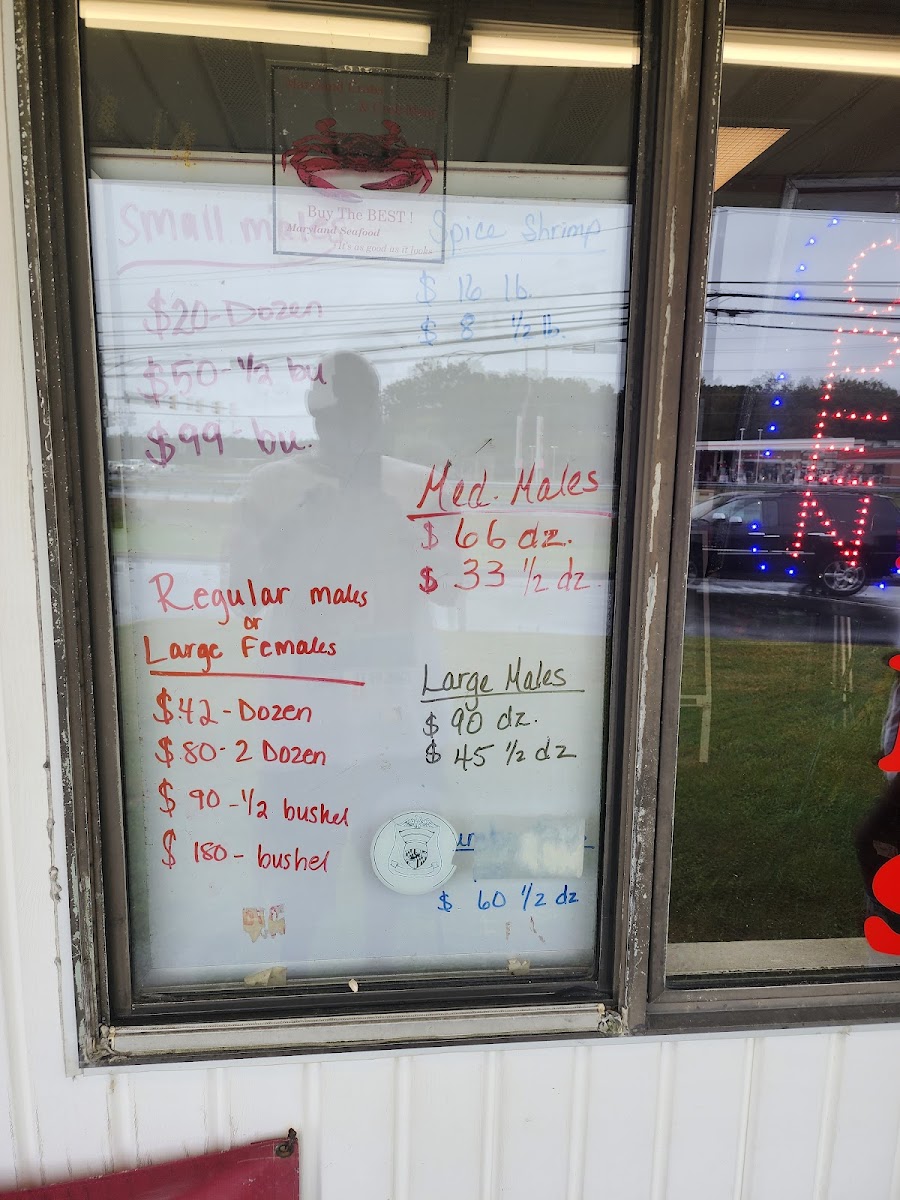 Maryland Crabs
Buy The BEST !
Maryland Seafood
It's as good as it looks
Small males
$20-Dozen
$50-1/2 bu
$99-bu.
Spice Shrimp
$ 16 lb.
$ 8 1/2 lb.
Med. Males
$ 66 dz.
$ 33 1/2 dz
Regular males
or
Large Females
$42-Dozen
$80-2 Dozen
$ 90-1/2 bushel
$ 180-bushel
Large Males
$ 90 dz.
$ 45 1/2 dz
$ 60 1/2 dz
OPEN